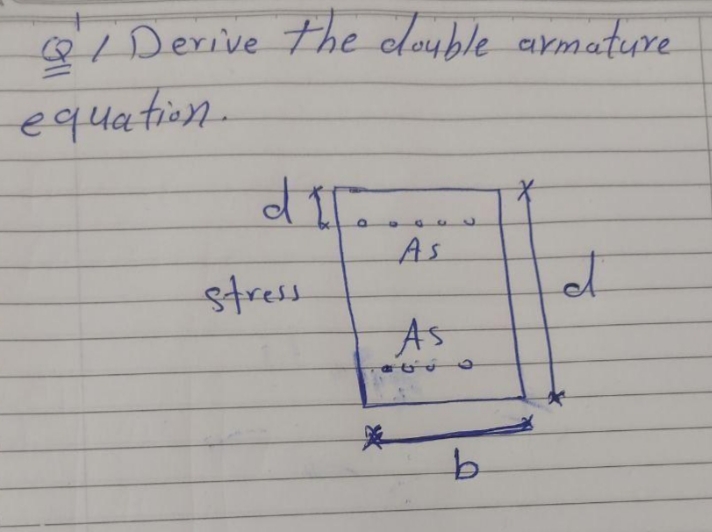 Q1/ Derive the double armature
equation.
d
As
stress
d
As
b